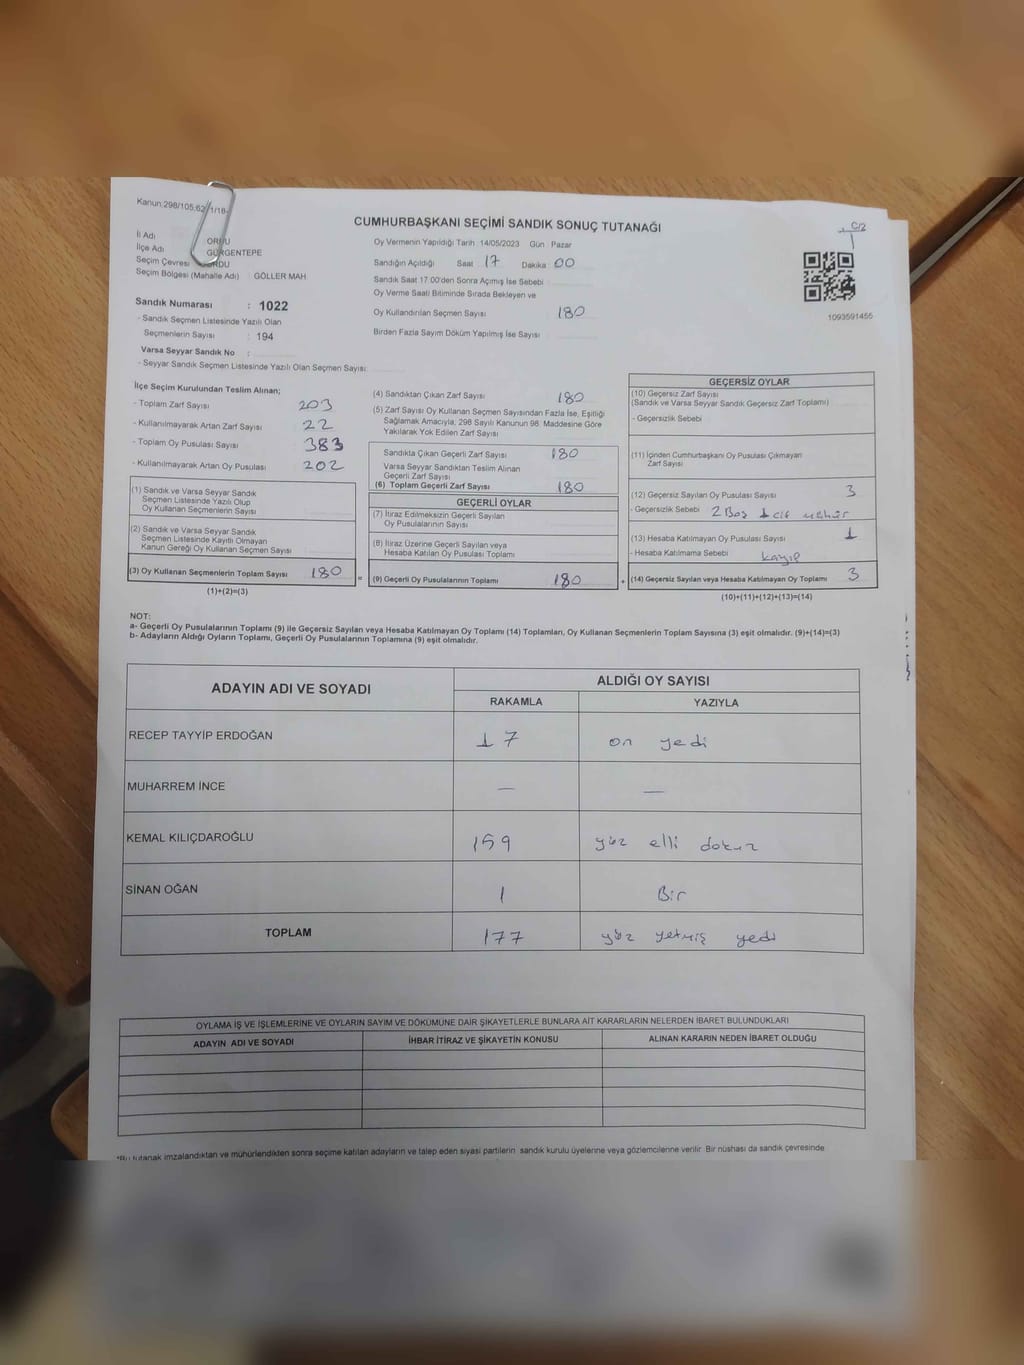 Kanun:298/105,62/1/18-
CUMHURBAŞKANI SEÇİMİ SANDIK SONUÇ TUTANAĞI
C/2
İl Adı ORDU
İlçe Adı GÜRGENTEPE
Seçim Çevresi ORDU
Seçim Bölgesi (Mahalle Adı) : GÖLLER MAH
Sandık Numarası : 1022
- Sandık Seçmen Listesinde Yazılı Olan
Seçmenlerin Sayısı : 194
Varsa Seyyar Sandık No :
- Seyyar Sandık Seçmen Listesinde Yazılı Olan Seçmen Sayısı:
Oy Vermenin Yapıldığı Tarih 14/05/2023 Gün Pazar
Sandığın Açıldığı Saat 17 Dakika 00
Sandık Saat 17:00'den Sonra Açılmış İse Sebebi
Oy Verme Saati Bitiminde Sırada Bekleyen ve
Oy Kullandırılan Seçmen Sayısı 180
Birden Fazla Sayım Döküm Yapılmış İse Sayısı
1093591455
İlçe Seçim Kurulundan Teslim Alınan;
- Toplam Zarf Sayısı 203
- Kullanılmayarak Artan Zarf Sayısı 22
- Toplam Oy Pusulası Sayısı 383
- Kullanılmayarak Artan Oy Pusulası 202
(1) Sandık ve Varsa Seyyar Sandık
Seçmen Listesinde Yazılı Olup
Oy Kullanan Seçmenlerin Sayısı
(2) Sandık ve Varsa Seyyar Sandık
Seçmen Listesinde Kayıtlı Olmayan
Kanun Gereği Oy Kullanan Seçmen Sayısı
(3) Oy Kullanan Seçmenlerin Toplam Sayısı 180
(1)+(2)=(3)
(4) Sandıktan Çıkan Zarf Sayısı 180
(5) Zarf Sayısı Oy Kullanan Seçmen Sayısından Fazla İse, Eşitliği
Sağlamak Amacıyla, 298 Sayılı Kanunun 98. Maddesine Göre
Yakılarak Yok Edilen Zarf Sayısı
Sandıkta Çıkan Geçerli Zarf Sayısı 180
Varsa Seyyar Sandıktan Teslim Alınan
Geçerli Zarf Sayısı
(6) Toplam Geçerli Zarf Sayısı 180
GEÇERLİ OYLAR
(7) İtiraz Edilmeksizin Geçerli Sayılan
Oy Pusulalarının Sayısı
(8) İtiraz Üzerine Geçerli Sayılan veya
Hesaba Katılan Oy Pusulası Toplamı
= (9) Geçerli Oy Pusulalarının Toplamı 180 +
GEÇERSİZ OYLAR
(10) Geçersiz Zarf Sayısı
(Sandık ve Varsa Seyyar Sandık Geçersiz Zarf Toplamı)
- Geçersizlik Sebebi
(11) İçinden Cumhurbaşkanı Oy Pusulası Çıkmayan
Zarf Sayısı
(12) Geçersiz Sayılan Oy Pusulası Sayısı 3
- Geçersizlik Sebebi 2 Boş 1 cif mühür
(13) Hesaba Katılmayan Oy Pusulası Sayısı 1
- Hesaba Katılmama Sebebi kayıp
(14) Geçersiz Sayılan veya Hesaba Katılmayan Oy Toplamı 3
(10)+(11)+(12)+(13)=(14)
NOT:
a- Geçerli Oy Pusulalarının Toplamı (9) ile Geçersiz Sayılan veya Hesaba Katılmayan Oy Toplamı (14) Toplamları, Oy Kullanan Seçmenlerin Toplam Sayısına (3) eşit olmalıdır. (9)+(14)=(3)
b- Adayların Aldığı Oyların Toplamı, Geçerli Oy Pusulalarının Toplamına (9) eşit olmalıdır.
ADAYIN ADI VE SOYADI ALDIĞI OY SAYISI
RAKAMLA YAZIYLA
RECEP TAYYİP ERDOĞAN 17 on yedi
MUHARREM İNCE — —
KEMAL KILIÇDAROĞLU 159 yüz elli dokuz
SİNAN OĞAN 1 Bir
TOPLAM 177 yüz yetmiş yedi
OYLAMA İŞ VE İŞLEMLERİNE VE OYLARIN SAYIM VE DÖKÜMÜNE DAİR ŞİKAYETLERLE BUNLARA AİT KARARLARIN NELERDEN İBARET BULUNDUKLARI
ADAYIN ADI VE SOYADI İHBAR İTİRAZ VE ŞİKAYETİN KONUSU ALINAN KARARIN NEDEN İBARET OLDUĞU
*Bu tutanak imzalandıktan ve mühürlendikten sonra seçime katılan adayların ve talep eden siyasi partilerin sandık kurulu üyelerine veya gözlemcilerine verilir. Bir nüshası da sandık çevresinde